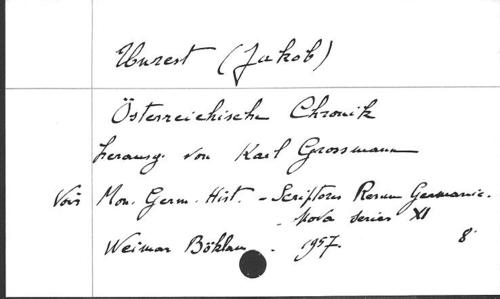 Unrest (Jakob)
Österreichische Chronik
herausg. von Karl Grossmann
Voir Mon. Germ. Hist. - Scriptores Rerum Germanic.
Nova series XI
Weimar Böhlau. 1957. 8°